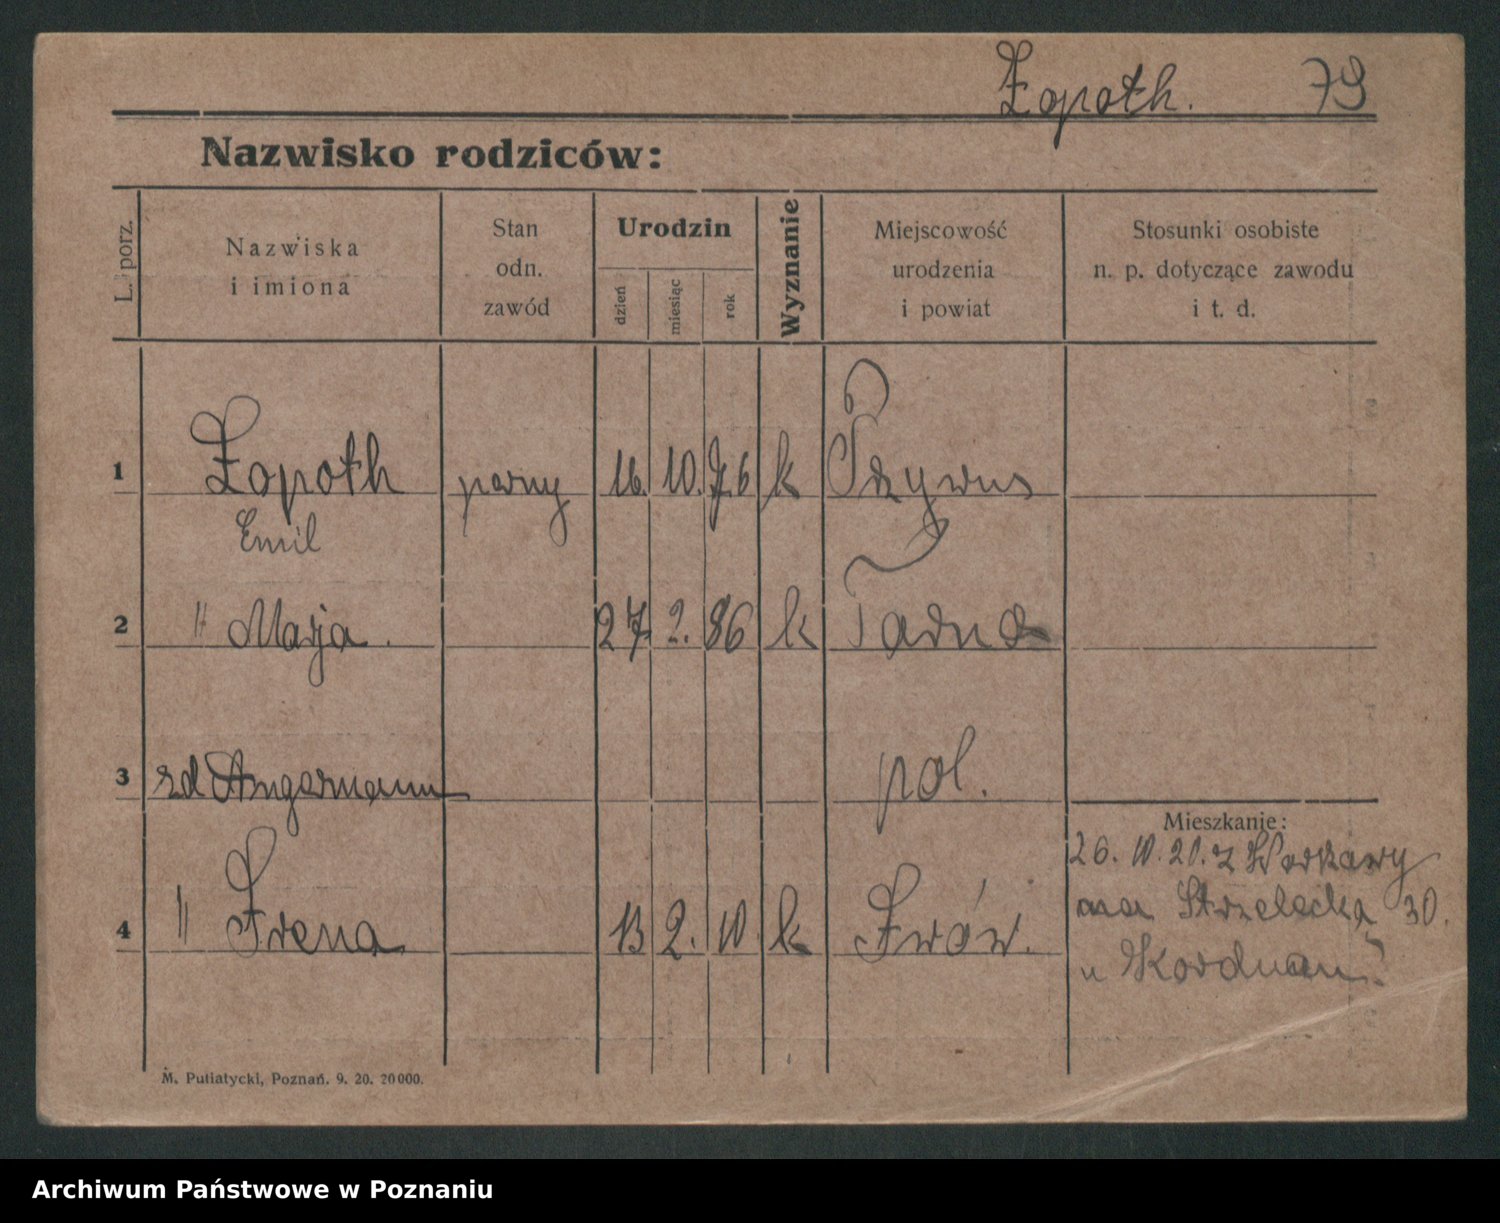 Zopoth. 79
Nazwisko rodziców:
L. porz.
Nazwiska
i imiona
Stan
odn.
zawód
Urodzin
dzień
miesiąc
rok
Wyznanie
Miejscowość
urodzenia
i powiat
Stosunki osobiste
n. p. dotyczące zawodu
i t. d.
1 Zopoth 16. 10. 76 k
Emil
2 " Marja. 27 2. 86 k
3 zd Angermann pol.
4 " Irena 13 2. 10. k Lwów.
Mieszkanie:
26. 10. 20. z
na Strzelecka 30.
u
M. Putiatycki, Poznań. 9. 20. 20000.
Archiwum Państwowe w Poznaniu